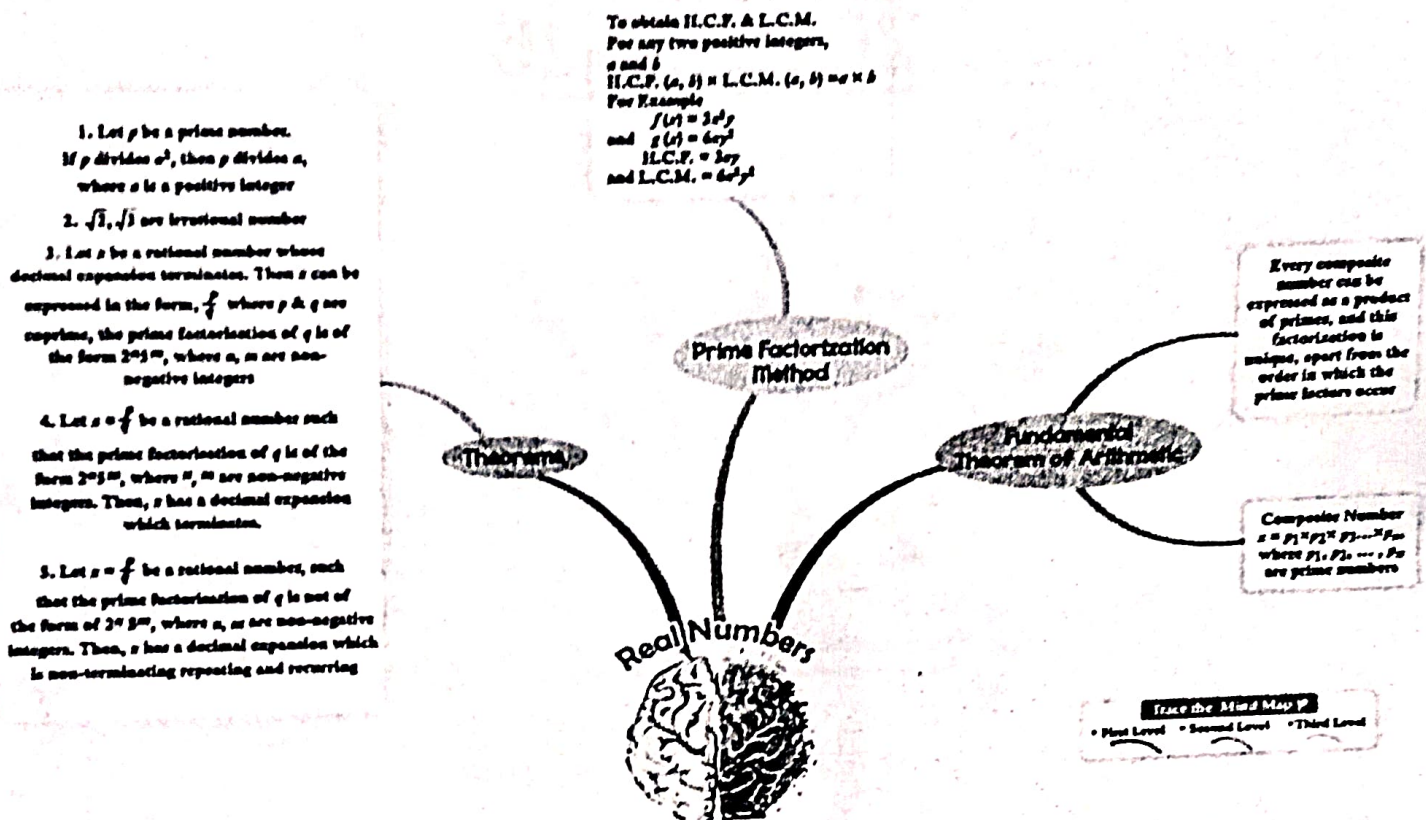 To obtain H.C.F. & L.C.M.
For any two positive integers,
a and b
H.C.F. (a, b) × L.C.M. (a, b) = a × b
For Example
f(x) = 3x²y
and g(x) = 6xy²
H.C.F. = 3xy
and L.C.M. = 6x²y²
1. Let p be a prime number.
If p divides a², then p divides a,
where a is a positive integer
2. √2, √3 are irrational number
3. Let x be a rational number whose
decimal expansion terminates. Then x can be
expressed in the form, p/q where p & q are
coprime, the prime factorisation of q is of
the form 2ⁿ5ᵐ, where n, m are non-
negative integers
4. Let x = p/q be a rational number such
that the prime factorisation of q is of the
form 2ⁿ5ᵐ, where n, m are non-negative
integers. Then, x has a decimal expansion
which terminates.
5. Let x = p/q be a rational number, such
that the prime factorisation of q is not of
the form of 2ⁿ 5ᵐ, where n, m are non-negative
integers. Then, x has a decimal expansion which
is non-terminating repeating and recurring
Theorems
Prime Factorization
Method
Fundamental
Theorem of Arithmetic
Every composite
number can be
expressed as a product
of primes, and this
factorization is
unique, apart from the
order in which the
prime factors occur
Composite Number
x = p₁×p₂× p₃...×pₙ,
where p₁, p₂, ... , pₙ
are prime numbers
Real Numbers
Trace the Mind Map
• First Level • Second Level • Third Level